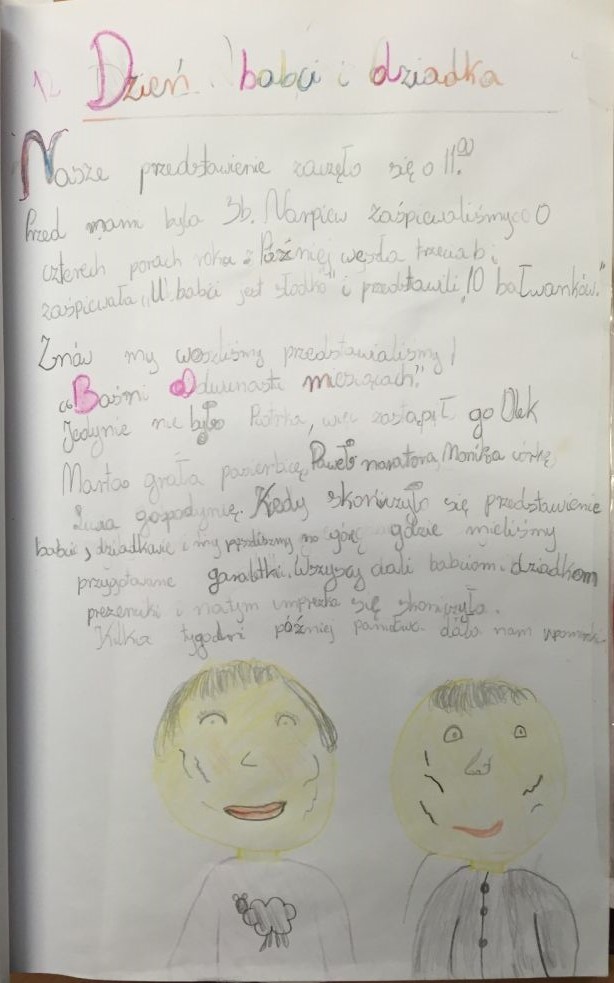 12 Dzień babci i dziadka
Nasze przedstawienie zaczęło się o 11.00
Przed nami była 3b. Narpiew zaśpiewaliśmy O
czterech porach roku. Później weszła trzecia b i
zaśpiewała „U babci jest słodko" i przedstawili „10 bałwanków."
Znów my weszliśmy przedstawialiśmy
„Baśni O dwunastu miesiącach."
Jedynie nie było Piotrka, więc zastąpił go Olek
Marta grała pasierbicę, Paweł naratora, Monika córkę,
Zuza gospodynię. Kiedy skończyło się przedstawienie
babcie, dziadkowie i my poszliśmy na górę gdzie mieliśmy
przygotowane . Wszyscy dali babciom i dziadkom
prezenciki i natym imprezka się skończyła.
Kilka tygodni później dała nam